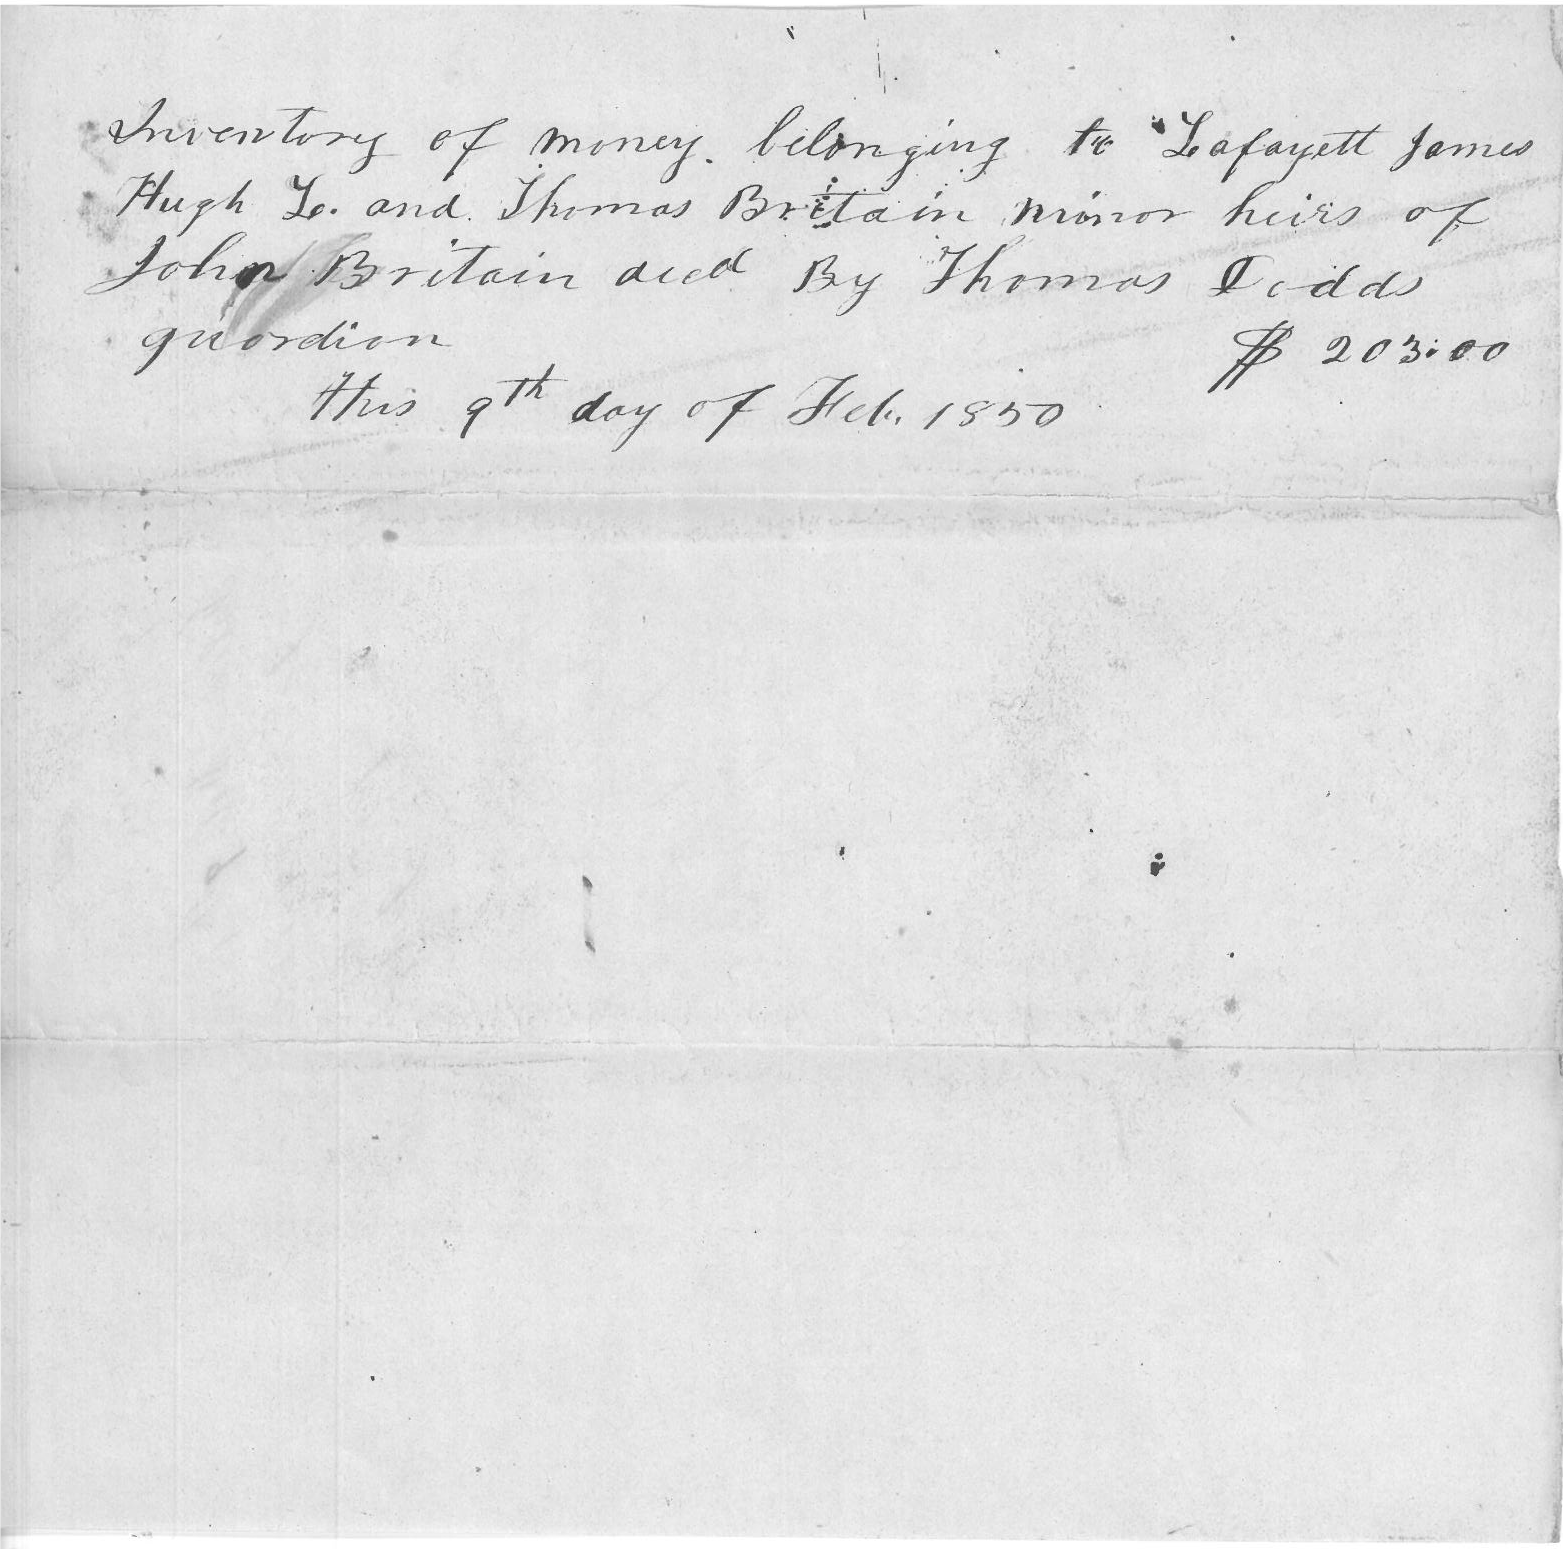 Inventory of money. belonging to Lafayett James
Hugh L. and Thomas Britain minor heirs of
John Britain decd By Thomas Dodds
guardian $ 203.00
this 9th day of Feb. 1850